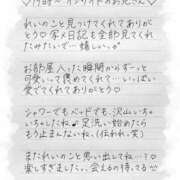 ♡17時〜 インサイドのお兄さん♡
れいのこと見つけてくれてありが
とう♡写メ日記も全部見てくれ
たみたいで…嬉しい。.°
お部屋入った瞬間からずーっと
可愛いって褒めてくれて…いっぱい
愛でてくれてありがとう♡
シャワーでもベッドでも、沢山いちゃ
いちゃしたね♪足洗い始めたら
もう止まんないね。(伝われ笑)
またれいのこと思い出してね…♡?
楽しすぎました、会えるの待ってる